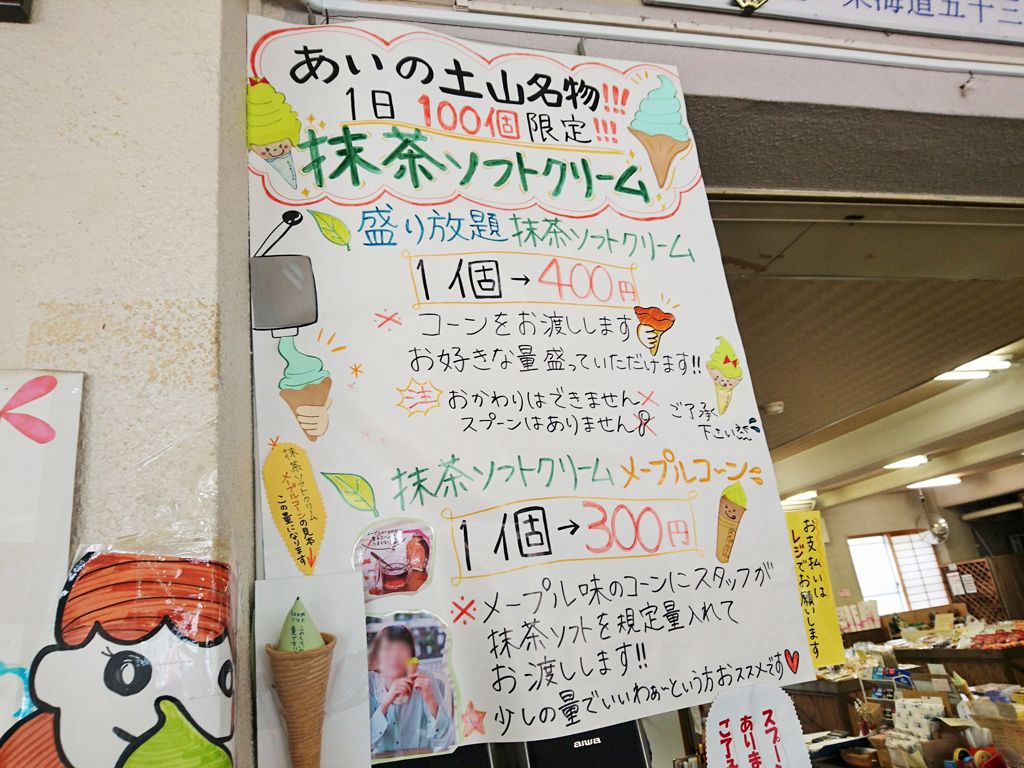 東海道五十三
あいの土山名物!!!
1日 100個限定!!!
抹茶ソフトクリーム
盛り放題 抹茶ソフトクリーム
1個→400円
※ コーンをお渡しします
お好きな量盛っていただけます!!
注 おかわりはできません
スプーンはありません
ご了承
下さい
抹茶ソフトクリーム
メープルコーンの見本
この量になります
抹茶ソフトクリーム メープルコーン
1個→300円
※ メープル味のコーンにスタッフが
抹茶ソフトを規定量入れて
お渡しします!!
少しの量でいいわぁ〜という方おススメです♥
お支払いは
レジでお願いします
aiwa
スプーン
ありま